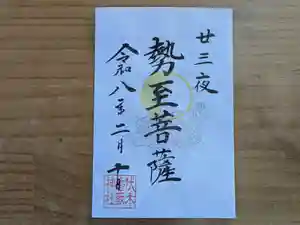 廿三夜
勢至菩薩
令和八年二月十日